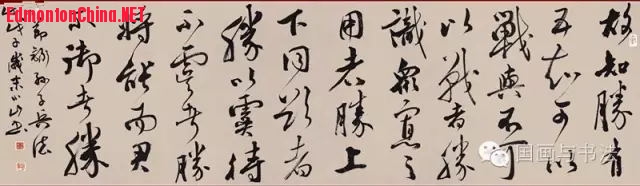 www.EdmontonChina.NET
故知勝有
五知可以
戰與不可
以戰者勝
識眾寡之
用者勝上
下同欲者
勝以虞待
不虞者勝
將能而君
不御者勝
節錄孫子兵法
戊子歲末
国画与书法